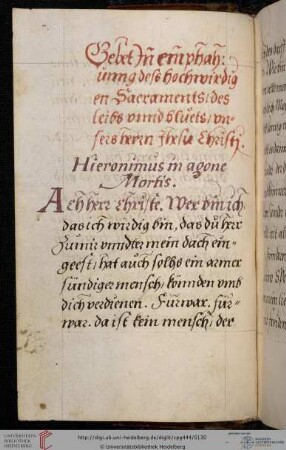 Gebet In emphah:
unng deß hochwirdig
en Sacraments, des
leibs vnnd bluets, vn
sers herrn Jhesu Christj.
Hieronimus in agone
Mortis.
Ach herr christe. Wer bin ich
das ich wirdig bin, das du herr
zu mir vnndter mein dach ein-
geest, hat auch solhs ein armer
sündiger mensch, könnden vmb
dich verdienen. Fürwar. für-
war. da ist kein mensch, der
UNIVERSITÄTS-
BIBLIOTHEK
HEIDELBERG
http://digi.ub.uni-heidelberg.de/diglit/cpg444/0130
© Universitätsbibliothek Heidelberg